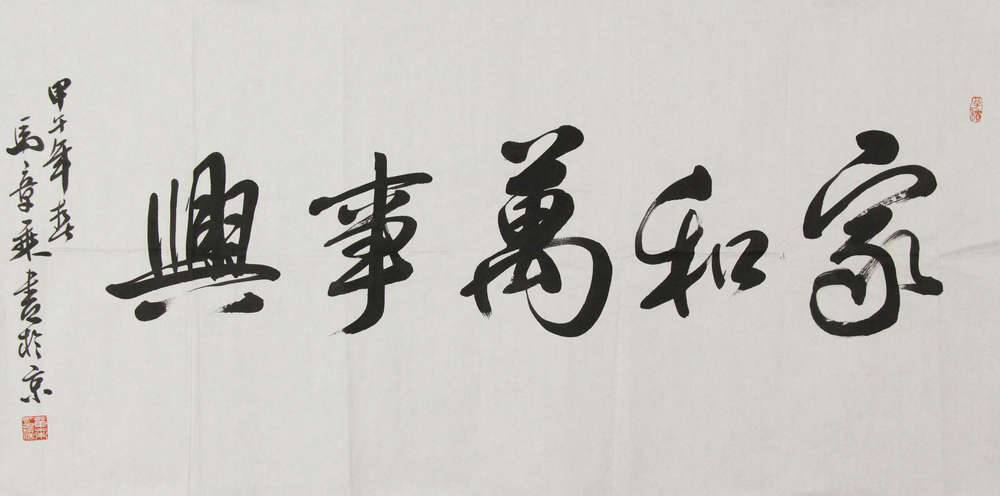 家和萬事興
甲午年春
馬章乘書於京